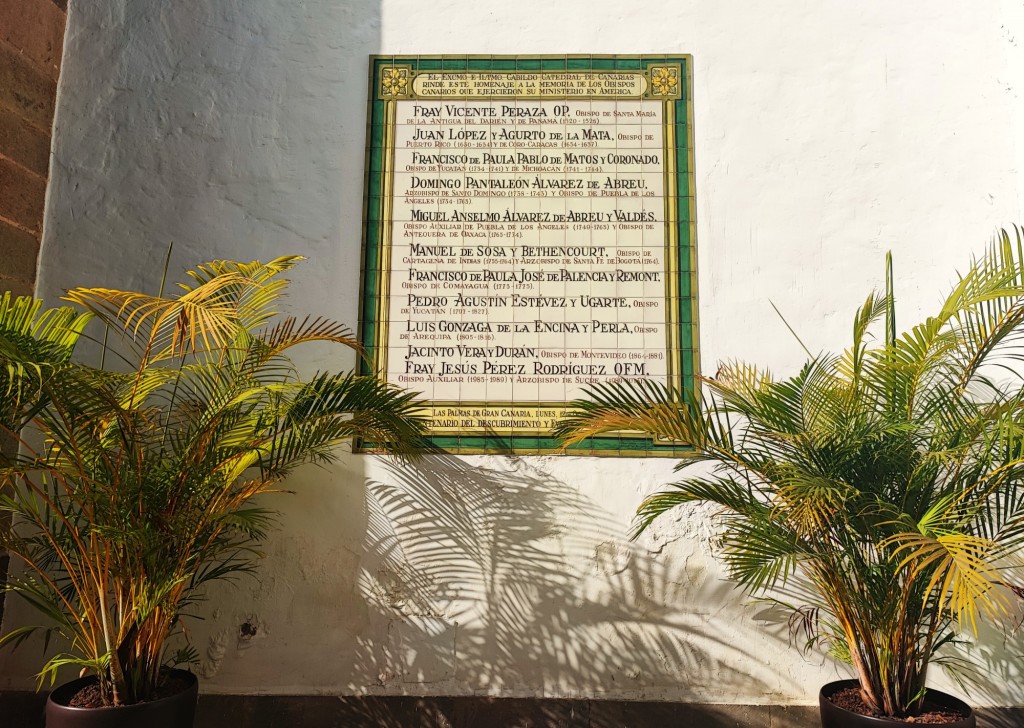 EL EXCMO E ILTMO. CABILDO CATEDRAL DE CANARIAS
RINDE ESTE HOMENAJE A LA MEMORIA DE LOS OBISPOS
CANARIOS QUE EJERCIERON SU MINISTERIO EN AMERICA.
FRAY VICENTE PERAZA OP. OBISPO DE SANTA MARIA
DE LA ANTIGUA DEL DARIÉN Y DE PANAMÁ (1520-1526).
JUAN LÓPEZ Y AGURTO DE LA MATA, OBISPO DE
PUERTO RICO (1630-1634) Y DE CORO-CARACAS (1634-1637).
FRANCISCO DE PAULA PABLO DE MATOS Y CORONADO,
OBISPO DE YUCATÁN (1734-1741) Y DE MICHOACÁN (1741-1744).
DOMINGO PANTALEÓN ÁLVAREZ DE ABREU,
ARZOBISPO DE SANTO DOMINGO (1738-1743) Y OBISPO DE PUEBLA DE LOS
ÁNGELES (1754-1763)
MIGUEL ANSELMO ÁLVAREZ DE ABREU Y VALDÉS.
OBISPO AUXILIAR DE PUEBLA DE LOS ÁNGELES (1749-1763) Y OBISPO DE
ANTEQUERA DE OAXACA (1765-1774).
MANUEL DE SOSA Y BETHENCOURT. OBISPO DE
CARTAGENA DE INDIAS (1755-1764) Y ARZOBISPO DE SANTA FE DE BOGOTÁ (1764).
FRANCISCO DE PAULA JOSÉ DE PALENCIA Y REMONT,
OBISPO DE COMAYAGUA (1773-1775).
PEDRO AGUSTÍN ESTÉVEZ Y UGARTE, OBISPO
DE YUCATÁN (1797-1827).
LUIS GONZAGA DE LA ENCINA Y PERLA, OBISPO
DE AREQUIPA (1805-1816).
JACINTO VERA Y DURÁN, OBISPO DE MONTEVIDEO (1864-1881).
FRAY JESÚS PÉREZ RODRÍGUEZ OFM.
OBISPO AUXILIAR (1985-1989) Y ARZOBISPO DE SUCRE
LAS PALMAS DE GRAN CANARIA, LUNES,
TENARIO DEL DESCUBRIMIENTO Y